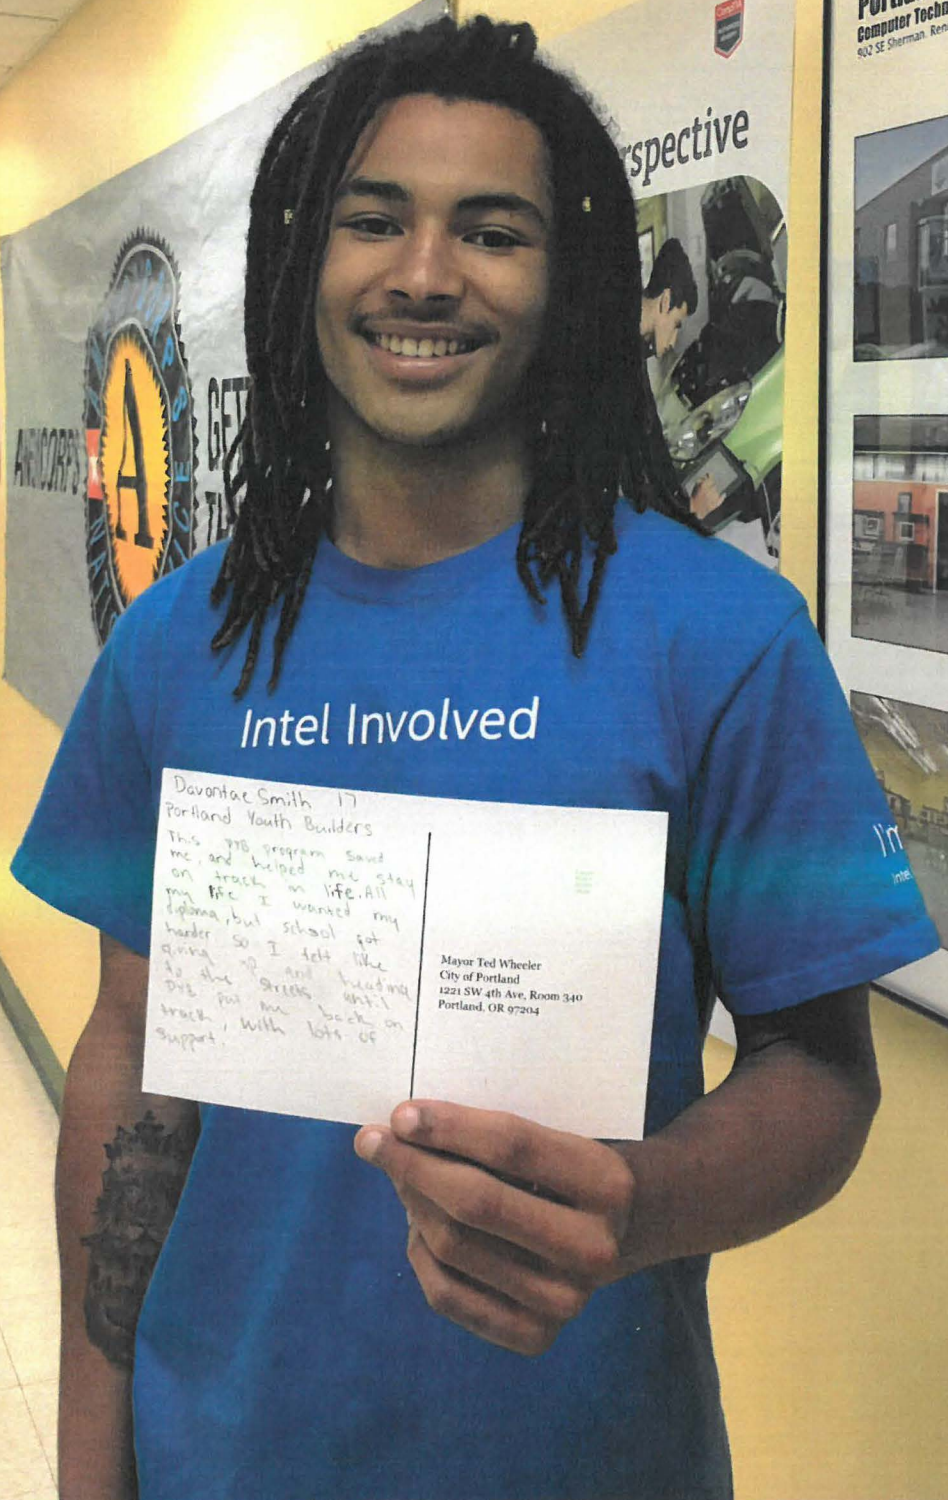 Portla
Computer Techn
902 SE Sherman. Ren
CompTIA
rspective
AMERICORPS
A
GET
Intel Involved
I'm
Intel
Davontae Smith 17
Portland Youth Builders
This PYB program saved
me, and helped me stay
on track in life. All
my life I wanted my
diploma, but school got
harder so I felt like
giving up and heading
to the streets until
PYB put me back on
track, with lots of
support.
Mayor Ted Wheeler
City of Portland
1221 SW 4th Ave, Room 340
Portland, OR 97204